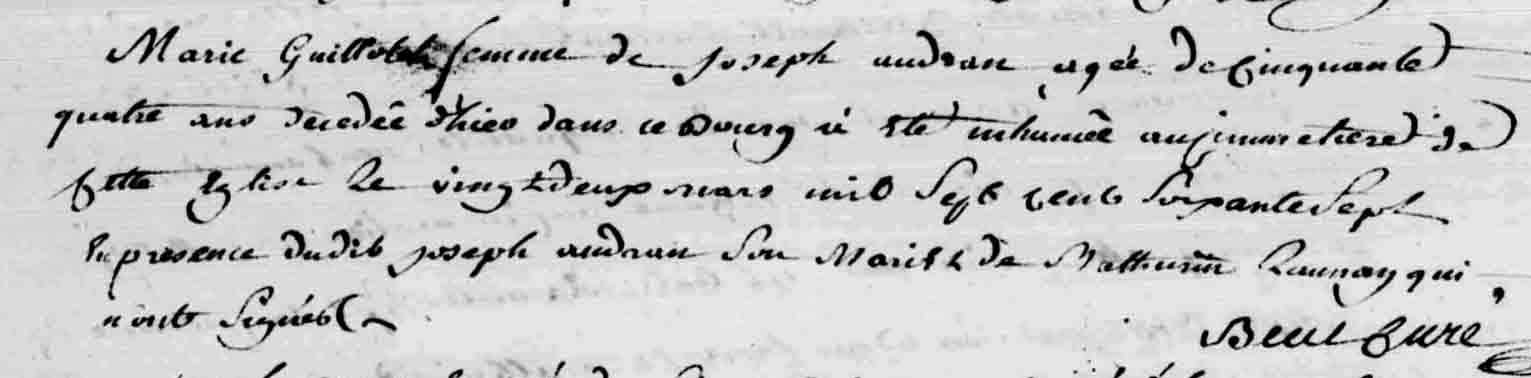 Marie Guillotel femme de joseph audran agée de Cinquante
quatre ans decedée d'hier dans ce Bourg à Eté inhumée au Cimmetiere de
Cette Eglise le vingtdeux mars mil Sept Cent Soixante Sept
En presence dudit joseph audran Son Mari Et de Mathurin Launay qui
n'ont Signés
Curé